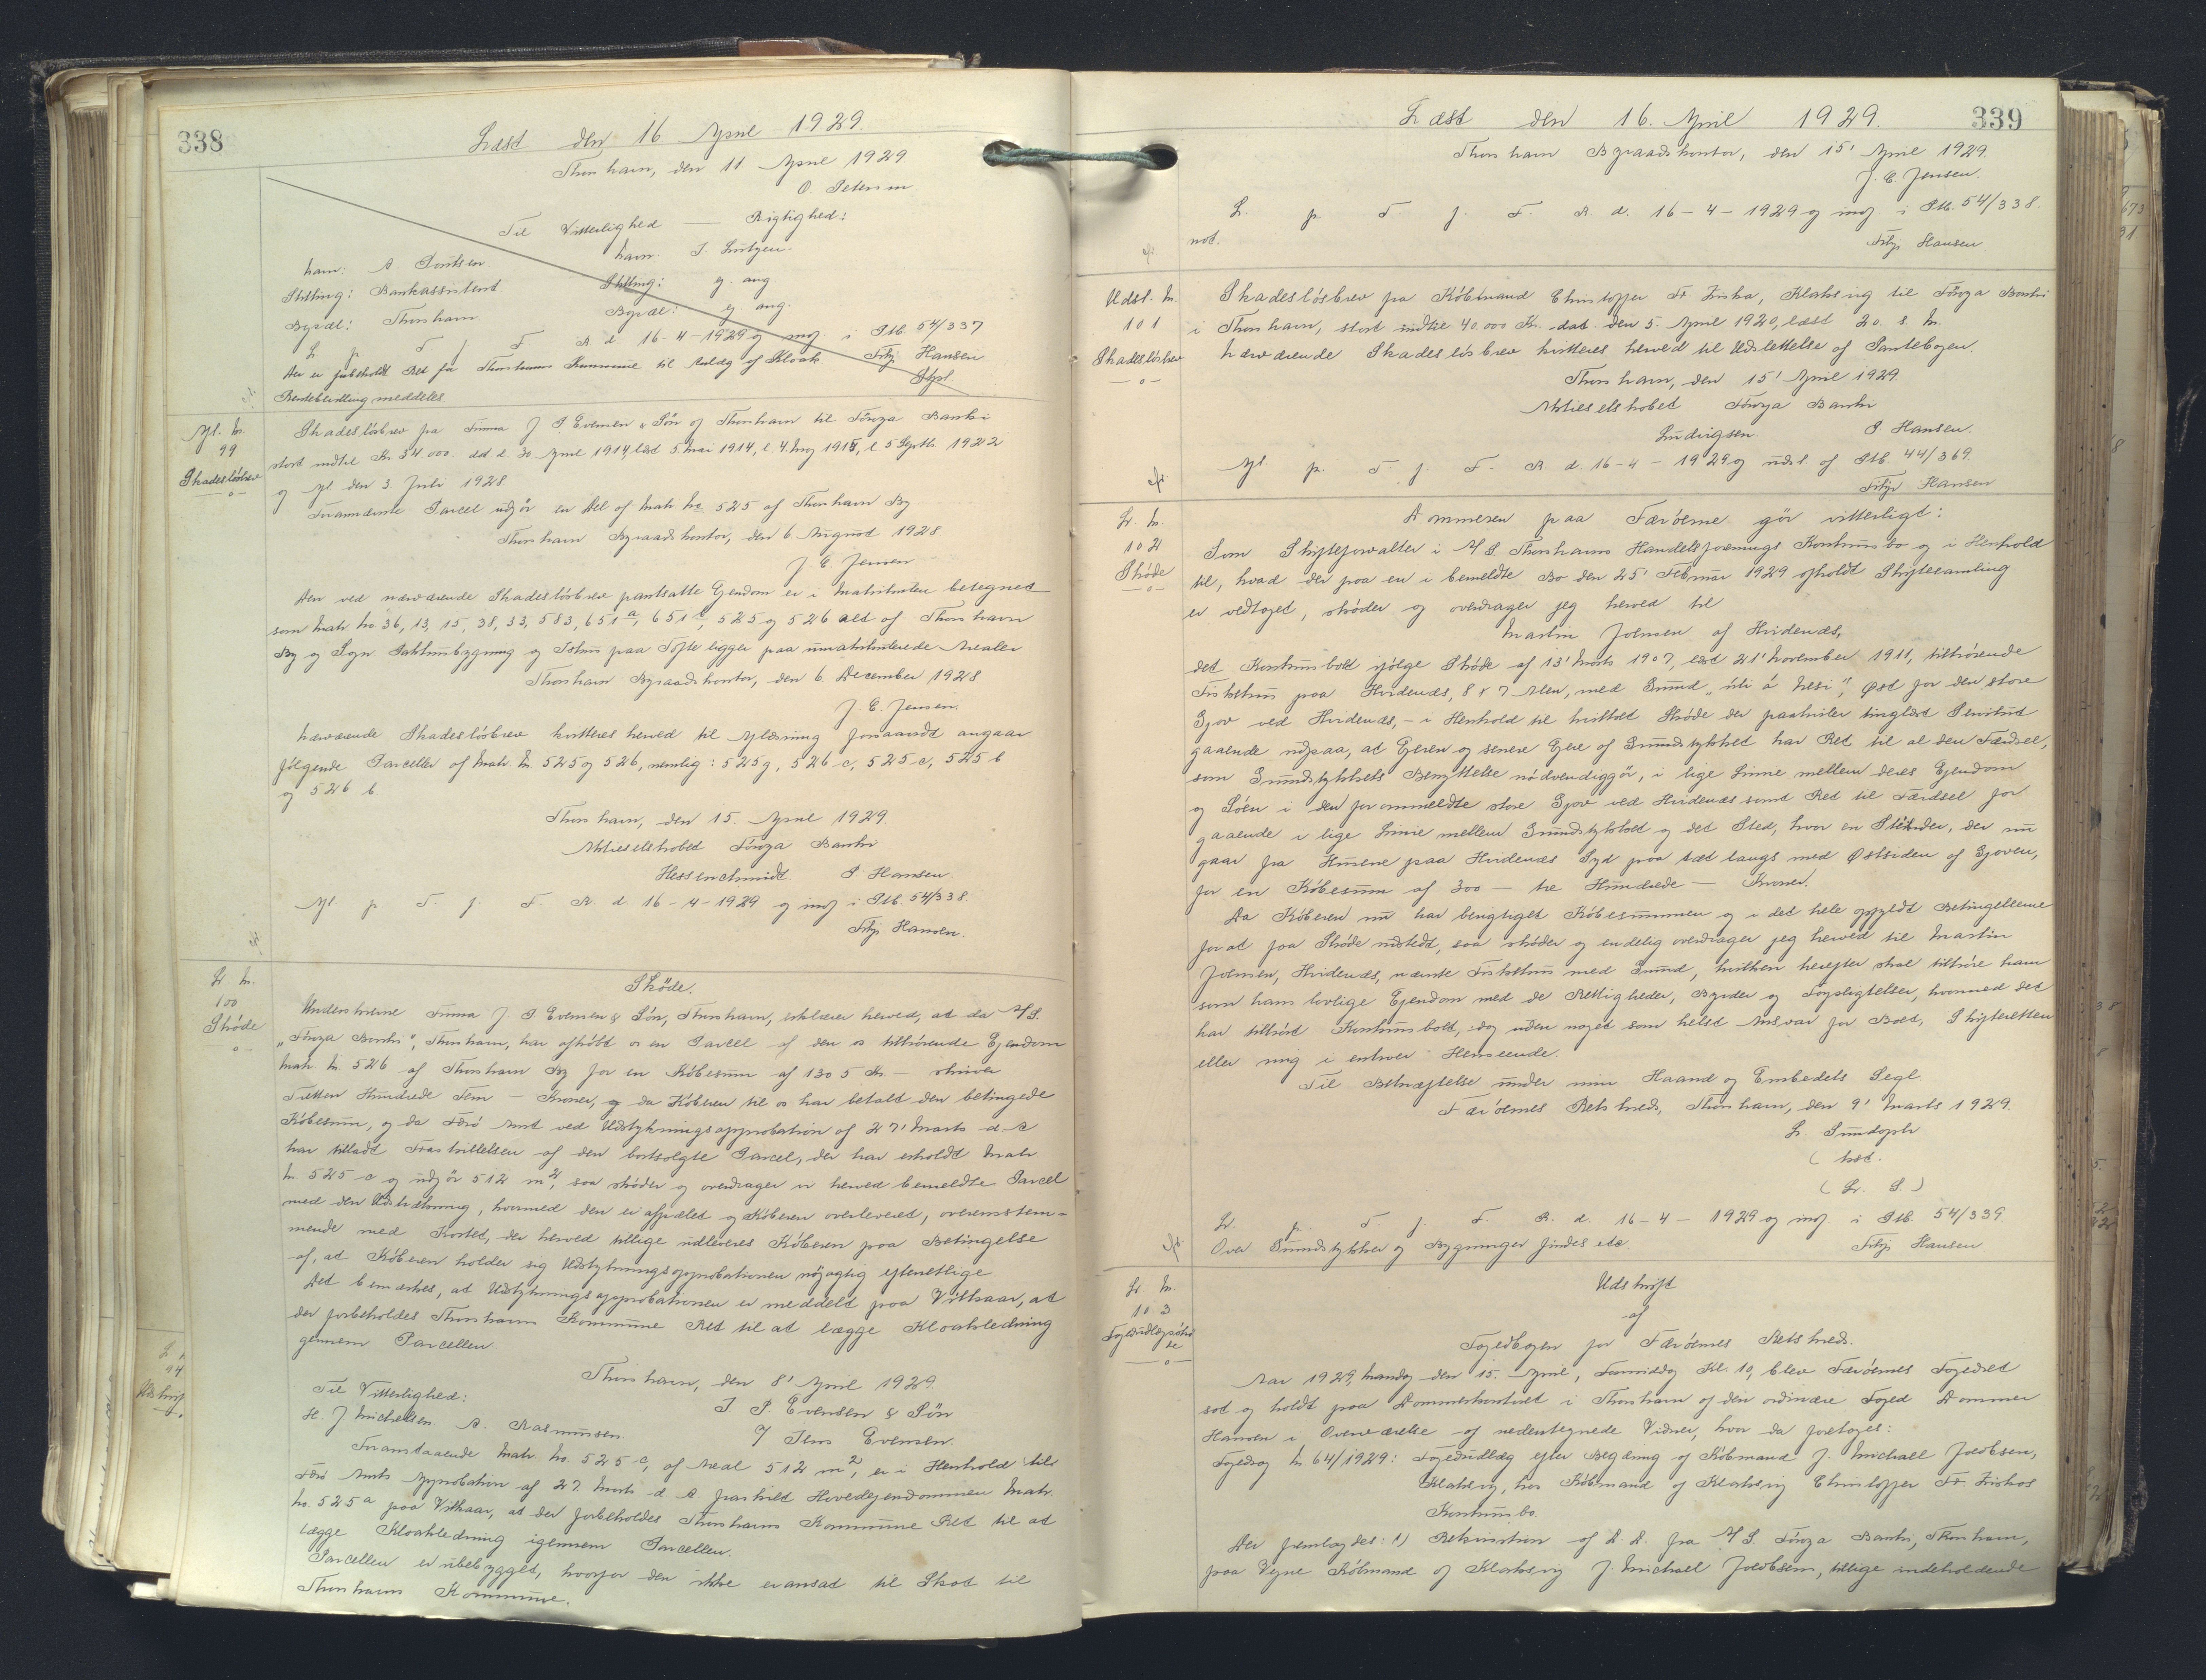 338
Læst den 16 April 1929.
Thorshavn, den 11. April 1929
O. Petersen
Til Vitterlighed — Rigtighed:
Navn: A. Poulsen
Navn: J. Lützen.
Stilling: Bankassistent
Stilling: og. ang
Bopæl: Thorshavn
Bopæl: og. ang.
L. p. T. f. F. R. d. 16-4-1929 og indf. i Ptb. 54/337
Der er forbeholdt Ret for Thorshavns Kommune til Anlæg af Kloak
Fritjs Hansen
Rentebladtning meddeles
Afl. Nr.
99
Skadesløsbrev
—o—
Skadesløsbrev fra Firma J P Evensen & Søn af Thorshavn til Føroya Banki
stort indtil Kr 34.000. dat d. 30 April 1914, læst 5. Mai 1914, l. 4. Aug 1915, l. 5 Septb. 1922
og afl den 3 Juli 1928
Forannævnte Parcel udgør en Del af Matr No 525 af Thorshavn By
Thorshavn Byraadskontor, den 6. August 1928.
J. C. Jensen
Den ved nærværende Skadesløsbrev pantsatte Ejendom er i Matrikulen betegnet
som Matr No 36, 13, 15, 38, 33, 583, 651 a, 651 c, 525 og 526 alt af Thorshavn
By og Sogn. Pakhusbygning og Ishus paa Tofte ligger paa umatrikulerede Arealer
Thorshavn Byraadskontor, den 6. December 1928
J. C. Jensen.
Nærværende Skadesløsbrev kvitteres herved til Aflæsning forsaavidt angaar
følgende Parceller af Matr. Nr. 525 og 526, nemlig: 525 g, 526 c, 525 c, 525 b
og 526 b
Thorshavn, den 15. April 1929.
Aktieselskabet Føroya Banki
Hessenschmidt. P. Hansen.
Afl p T. f. F. R. d 16-4-1929 og indf i Ptb. 54/338.
Fritjs Hansen.
L. Nr.
100
Skøde
—o—
Skøde.
Underskrevne Firma J. P. Evensen & Søn, Thorshavn, erklærer herved, at da A/S.
„Føroya Banki", Thorshavn, har afkøbt os en Parcel af den os tilhørende Ejendom
Matr. Nr. 526 af Thorshavn By for en Købesum af 1305 Kr. — skriver
Tretten Hundrede Fem — Kroner, og da Køberen til os har betalt den betingede
Købesum, og da Færø Amt ved Udstykningsapprobation af 27' Marts d. A
har tilladt Fraskillelsen af den bortsolgte Parcel, der har erholdt Matr.
Nr 525 c og udgør 512 m², saa skøder og overdrager vi herved bemeldte Parcel
med den Udstrækning, hvormed den er afpælet og Køberen overleveret, overensstem-
mende med Kortet, der herved tillige udleveres Køberen paa Betingelse
af, at Køberen holder sig Udstykningsapprobationen nøjagtig efterrettelige.
Det bemærkes, at Udstykningsapprobationen er meddelt paa Vilkaar, at
der forbeholdes Thorshavns Kommune Ret til at lægge Kloakledning
gennem Parcellen.
Thorshavn, den 8' April 1929.
Til Vitterlighed:
J. P. Evensen & Søn
H. J Michelsen. A. Rasmussen.
Jens Evensen.
Foranstaaende Matr. No. 525 c, af Areal 512 m², er i Henhold til
Færø Amts Approbation af 27. Marts d. A fraskilt Hovedejendommen Matr.
No. 525 a paa Vilkaar, at der forbeholdes Thorshavns Kommune Ret til at
lægge Kloakledning igennem Parcellen.
Parcellen er ubebygget, hvorfor den ikke er ansat til Skat til
Thorshavns Kommune.
339
Læst den 16. April 1929.
Thorshavn Byraadskontor, den 15' April 1929.
J. C. Jensen.
L. p. T. f. F. R. d. 16-4-1929 og indf. i Ptb. 54/338.
not.
Fritjs Hansen
Udsl. Nr.
101
Skadesløsbrev
—o—
Skadesløsbrev fra Købmand Christoffer Fr. Zisko, Klaksvig til Føroya Banki
i Thorshavn, stort indtil 40.000 Kr. dat. den 5. April 1920, læst 20. s. M.
Nærværende Skadesløsbrev kvitteres herved til Udslettelse af Pantebogen.
Thorshavn, den 15' April 1929.
Aktieselskabet Føroya Banki
Ludvigsen. P. Hansen.
Afl. p. T. f. F. R. d. 16-4-1929 og udsl. af Ptb. 44/369.
Fritjs Hansen
L. Nr.
102
Skøde
—o—
Dommeren paa Færøerne gør vitterligt:
Som Skifteforvalter i A/S. Thorshavns Handelsforenings Konkursbo og i Henhold
til, hvad der paa en i bemeldte Bo den 25' Februar 1929 afholdt Skiftesamling
er vedtaget, skøder og overdrager jeg herved til
Martin Joensen af Hvidenæs,
det Konkursboet ifølge Skøde af 13' Marts 1907, læst 21' November 1911, tilhørende
Fiskehus paa Hvidenæs, 8 x 7 Alen, med Grund „úti á Nesi", Øst for den store
Gjov ved Hvidenæs, – i Henhold til hvilket Skøde der paahviler tinglæst Servitut
gaaende ud paa, at Ejeren og senere Ejere af Grundstykket har Ret til al den Færdsel,
som Grundstykkets Benyttelse nødvendiggør, i lige Linie mellem deres Ejendom
og Søen i den forommeldte store Gjov ved Hvidenæs samt Ret til Færdsel for
gaaende i lige Linie mellem Grundstykket og det Sted, hvor en Sti ender, der nu
gaar fra Husene paa Hvidenæs Syd paa tæt langs med Østsiden af Gjoven,
for en Købesum af 300 — tre Hundrede — Kroner.
Da Køberen nu har berigtiget Købesummen og i det hele opfyldt Betingelserne
for at faa Skøde udstedt, saa skøder og endelig overdrager jeg herved til Martin
Joensen, Hvidenæs, nævnte Fiskehus med Grund, hvilken herefter skal tilhøre ham
som hans lovlige Ejendom med de Rettigheder, Byrder og Forpligtelser, hvormed det
har tilhørt Konkursboet, dog uden noget som helst Ansvar for Boet, Skifteretten
eller mig i enhver Henseende.
Til Bekræftelse under min Haand og Embedets Segl.
Færøernes Retskreds, Thorshavn, den 9' Marts 1929.
(kst.
(L. S.)
L. p. T. f. F. R. d. 16-4-1929 og indf. i Ptb. 54/339.
Over Grundstykker og Bygninger findes etc.
Fritjs Hansen
L Nr.
103
—o—
Udskrift
af
Fogedbogen for Færøernes Retskreds.
Aar 1929, Mandag den 15. April, Formiddag Kl. 10, blev Færøernes Fogedret
sat og holdt paa Dommerkontoret i Thorshavn af den ordinære Foged Dommer
Hansen i Overværelse af nedentegnede Vidner, hvor da foretoges:
Fogedsag Nr. 64/1929: Fogedudlæg efter Begæring af Købmand J. Michael Jacobsen,
Klaksvig, hos Købmand af Klaksvig Christoffer Fr. Ziskos
Konkursbo.
Der fremlagdes: 1) Rekvisition af D. D. fra A/S. Føroya Banki, Thorshavn,
paa Vegne Købmand af Klaksvig J. Michael Jacobsen, tillige indeholdende